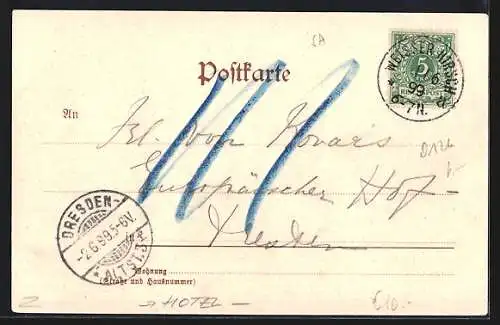 SA
Postkarte
WEISSER HIRSCH
5
6
99
6-7N.
An
Frl. von Kovats
Europäischer Hof
Dresden
DRESDEN-
-2.6.99.5-6V.
*ALTST.
Wohnung
(Straße und Hausnummer)
HOTEL
€10.-